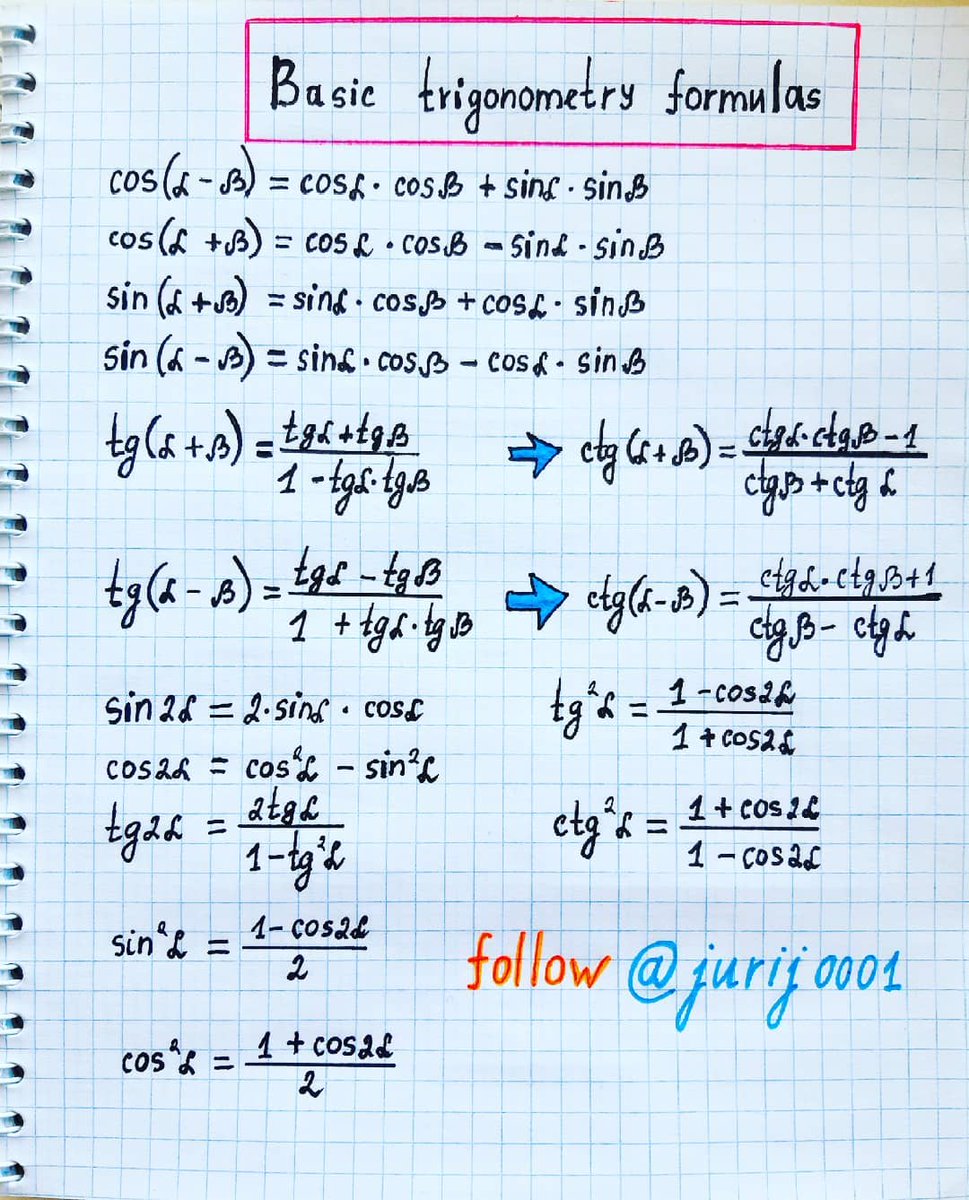 Basic trigonometry formulas
cos(α - β) = cosα · cosβ + sinα · sinβ
cos(α + β) = cosα · cosβ - sinα · sinβ
sin(α + β) = sinα · cosβ + cosα · sinβ
sin(α - β) = sinα · cosβ - cosα · sinβ
tg(α + β) = (tgα + tgβ)/(1 - tgα · tgβ) ➡ ctg(α + β) = (ctgα · ctgβ - 1)/(ctgβ + ctgα)
tg(α - β) = (tgα - tgβ)/(1 + tgα · tgβ) ➡ ctg(α - β) = (ctgα · ctgβ + 1)/(ctgβ - ctgα)
sin2α = 2 · sinα · cosα
cos2α = cos²α - sin²α
tg2α = 2tgα/(1 - tg²α)
sin²α = (1 - cos2α)/2
cos²α = (1 + cos2α)/2
tg²α = (1 - cos2α)/(1 + cos2α)
ctg²α = (1 + cos2α)/(1 - cos2α)
follow @jurij0001